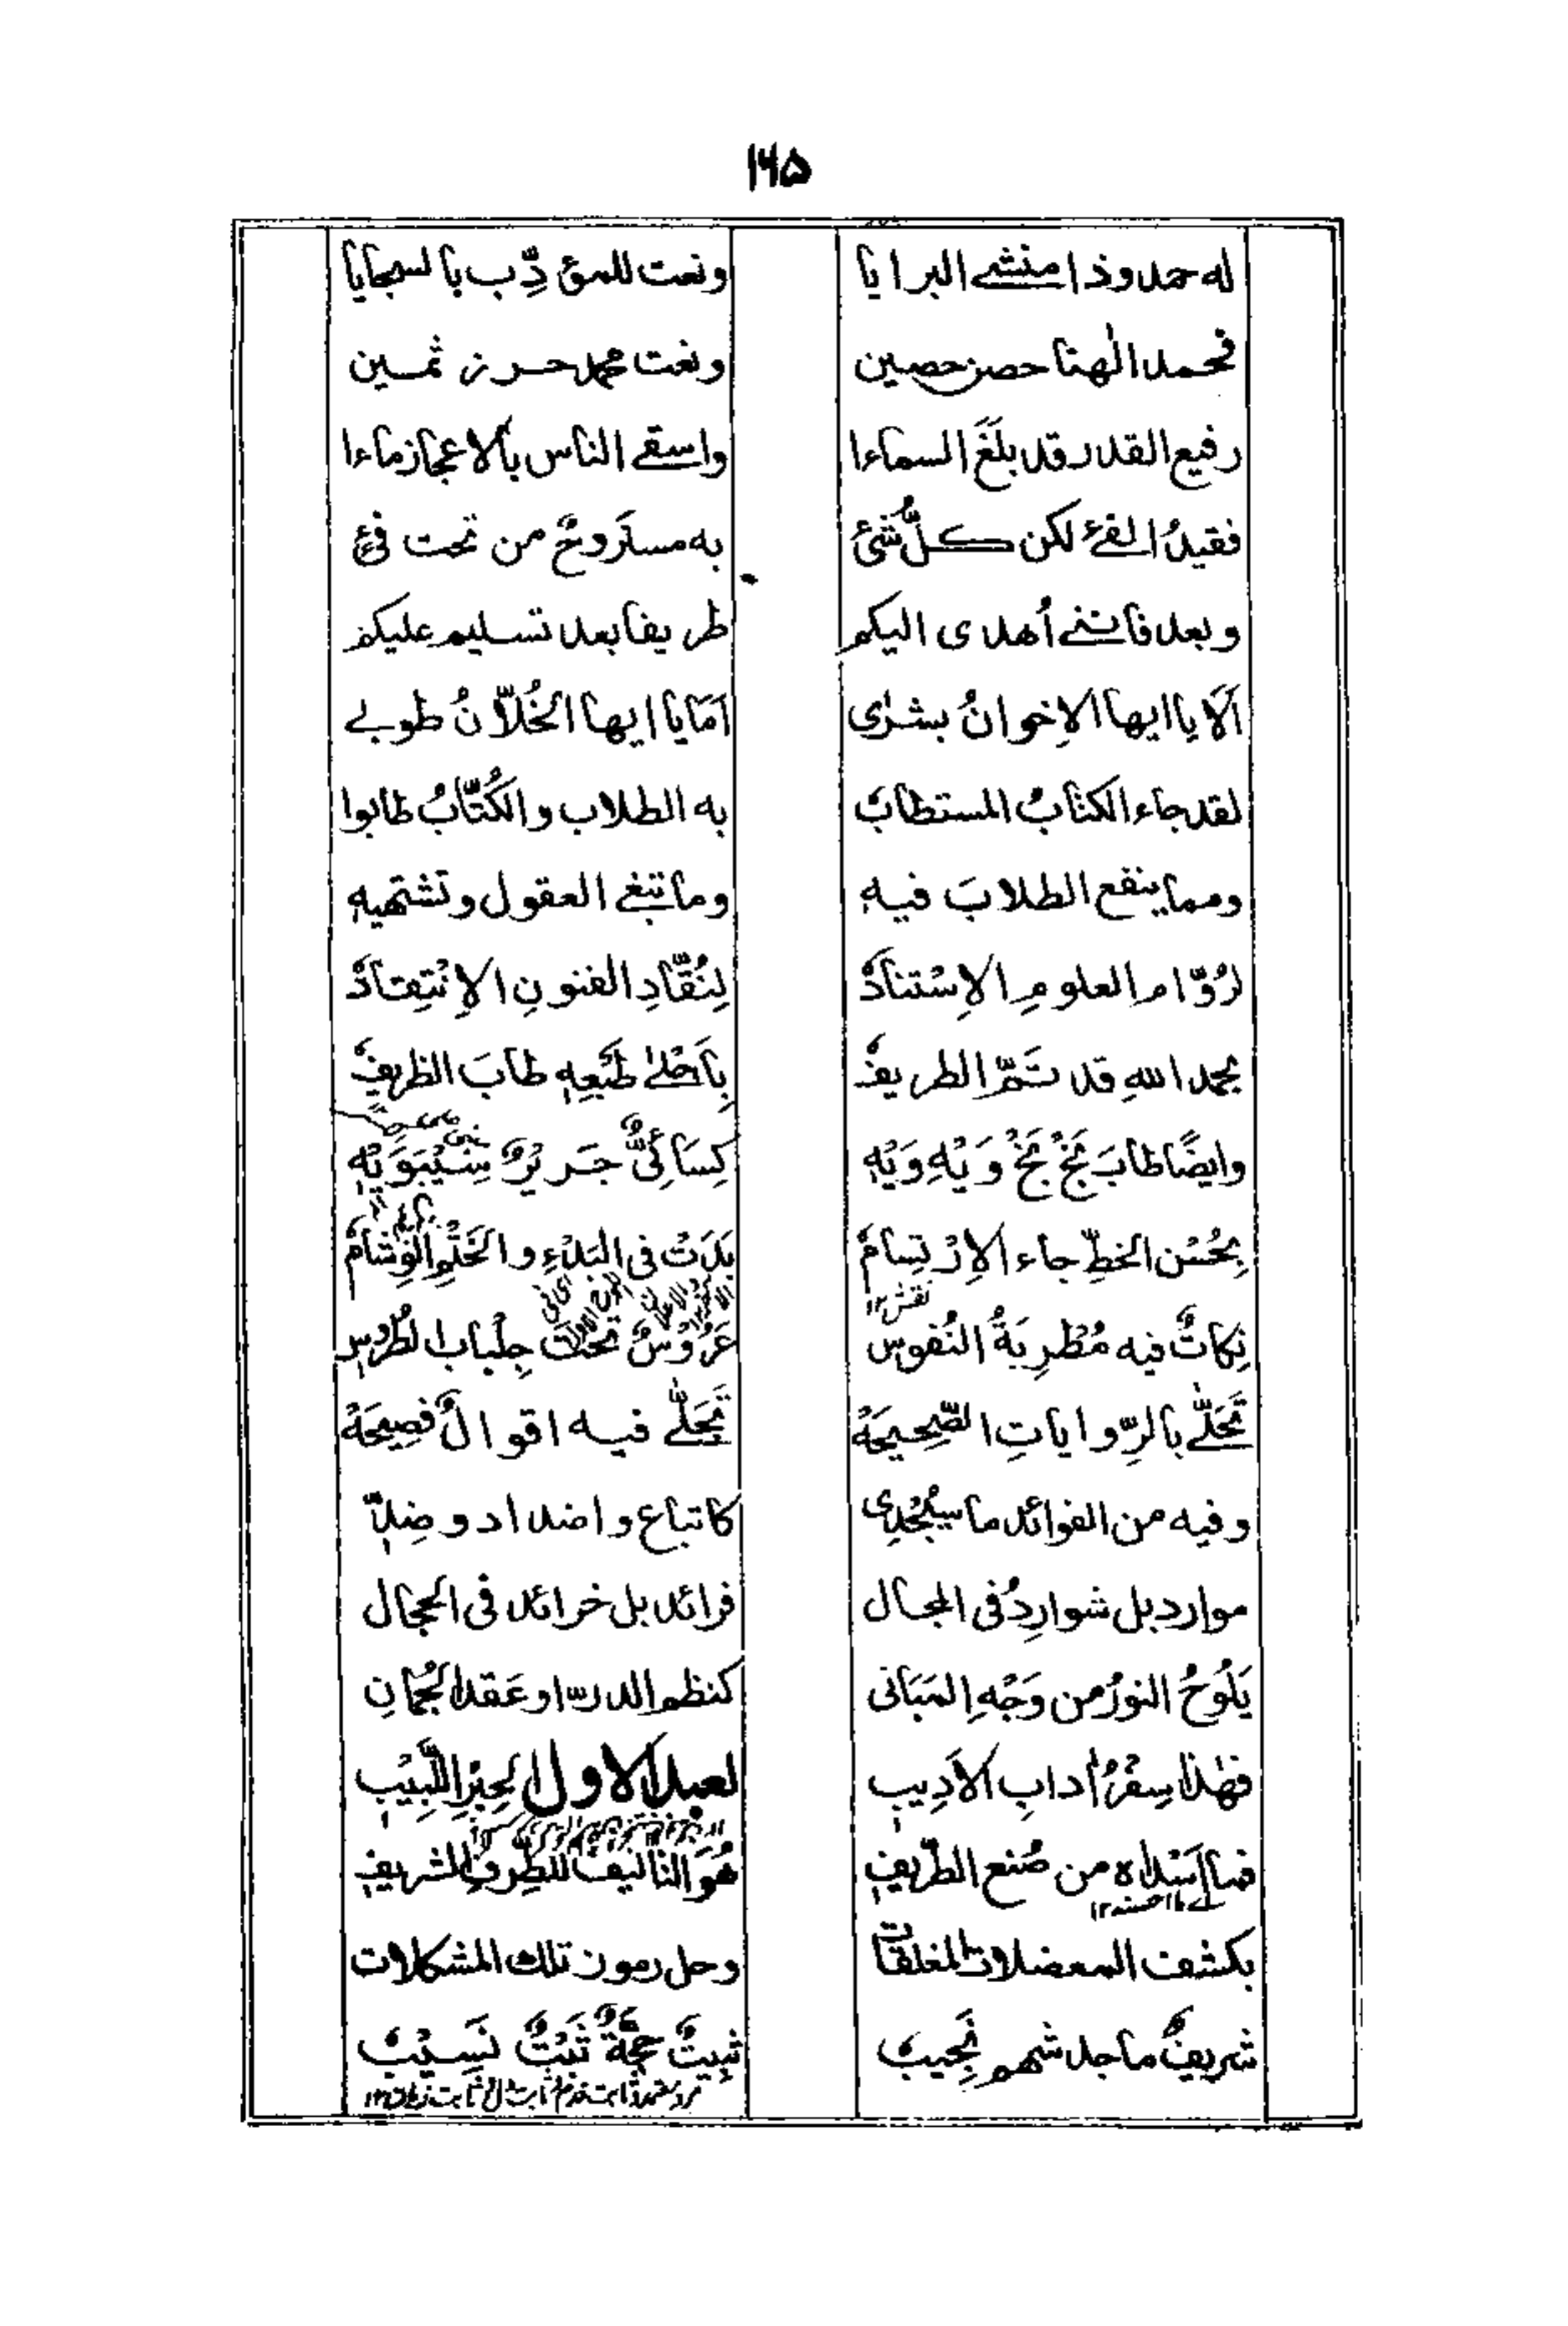 ۱۶۵
له حمد وذا منشے البرایا ونعت للمؤدِّب بالسجایا
فحمد الٰهنا حصن حصین ونعت محمد حرز ثمین
رفیع القدر قد بلَغَ السماءا واسقے الناس بالاعجاز ماءا
فقیدُ الفئ لکن کلُّ شئ به مستَروحٌ من تحت فئ
وبعد فاننے أهدی الیکم طریفا بعد تسلیم علیکم
اَلَا یا ایها الاِخوانُ بشرٰی اَمَا یا ایها الخُلّانُ طوبے
لقد جاء الکتابُ المستطابُ به الطلاب والکُتّابُ طابوا
ومما ینفع الطلابَ فیهِ وما تبغے العقول وتشتهیهِ
لرُوّامِ العلومِ الاِسْتنادُ لِنُقّادِ الفنونِ الاِنْتِقادُ
بحمد اللهِ قد تَمَّ الطریفُ بِاَحْلےٰ طَبْعِهٖ طابَ الظریفُ
وایضًا طابَ بَخْ بَخْ وَیْهِ وَیْهِ کِسَائیٌّ جَریرٌ سِیْبَوَیْهِ
بِحُسْن الخطِّ جاء الاِرْتِسامُ بَدَتْ فی البَدْءِ والخَتْمِ الوِشامُ
نقش ۱۲
نِکاتٌ فیه مُطْرِبَةُ النُفوسِ عَرُوْسٌ تحتَ جِلْبابِ الطُروسِ
تَحَلّٰے بالرِّوایاتِ الصَّحِیحَةْ تَجَلّٰے فیه اقوالٌ فصِیحَةْ
وفیه من الفوائد ما سیُجْدِی کاتباع واضداد وضِدّ
موارد بل شوارِدُ فی المجال فرائد بل خرائد فی الحجال
یَلُوْحُ النورُ من وَجْهِ المَبَانی کنظم الدرّ او عَقد الجُمانِ
فهٰذا سِفْرُ اٰدابِ الاَدِیبِ لعبد الاول الحِبْرِ اللَّبِیْبِ
فما اَسْداه من صُنع الطّریفِ هُوَ التالیف للطِرفِ الشریفِ
بکشف المعضلات المغلقات وحل رموز تلك المشکلات
شریفٌ ماجد شهم نَجیبٌ ثبیتٌ حجةٌ ثَبْتٌ نَسِیْبٌ